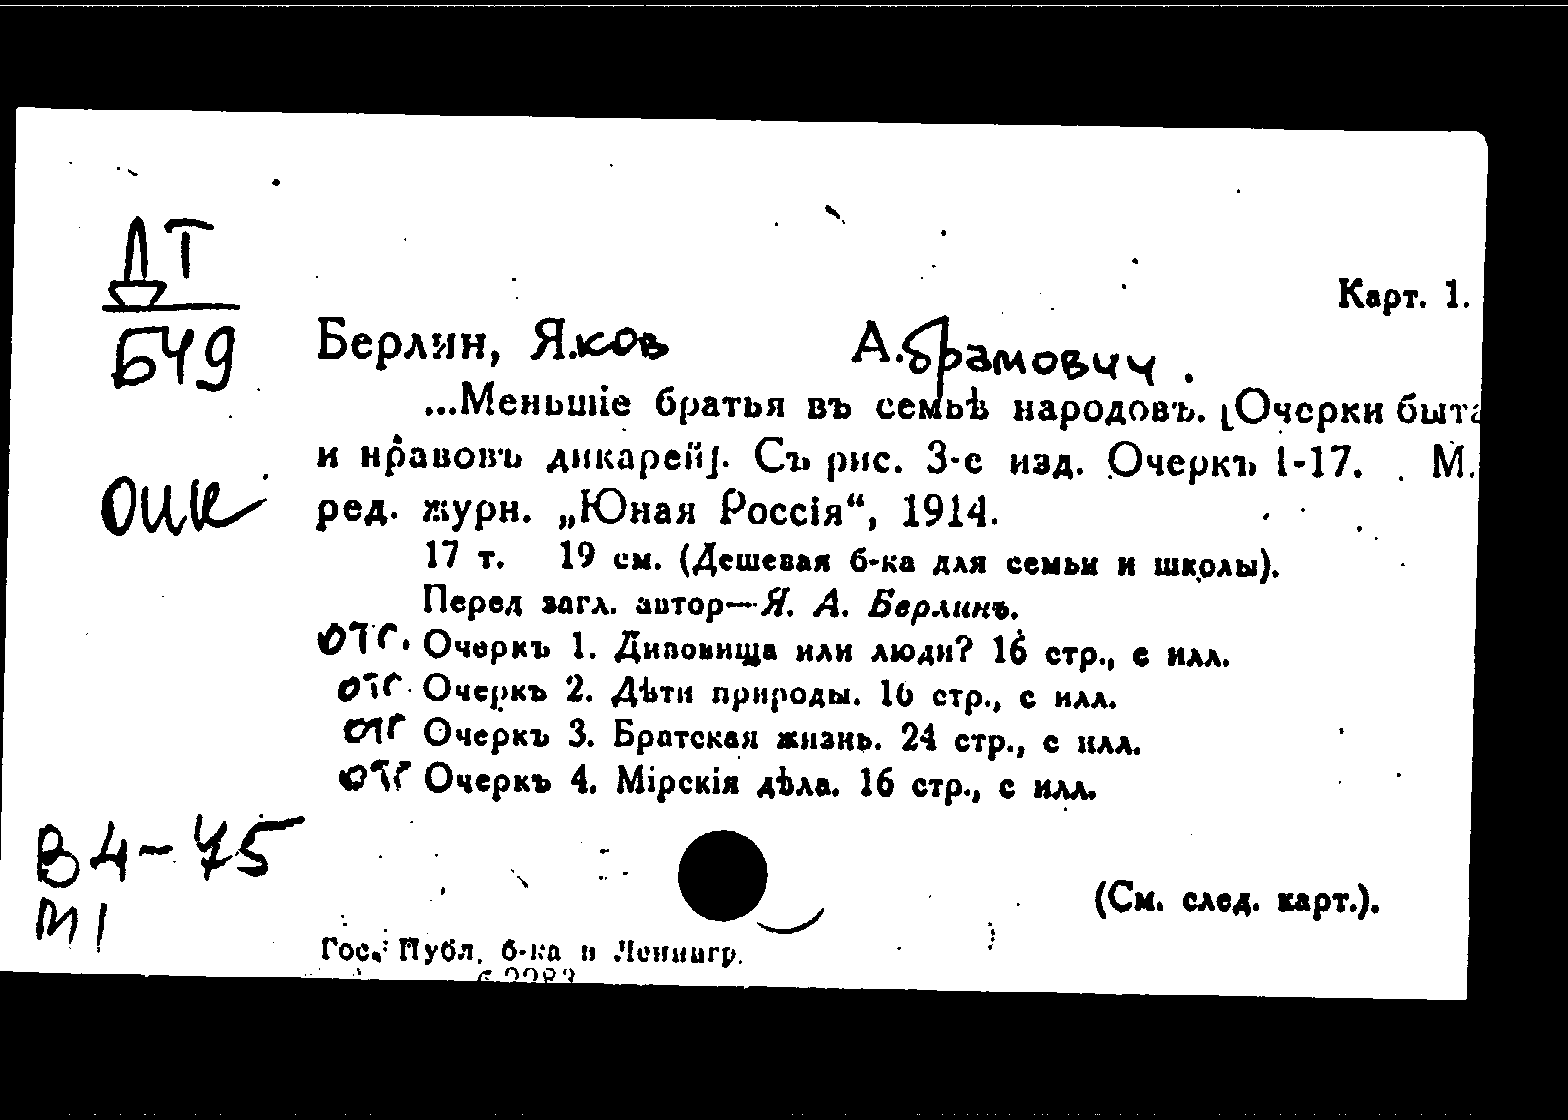 ДТ
Б49
Карт. 1.
Берлин, Яков Абрамович.
...Меньшіе братья въ семьѣ народовъ. [Очерки быта
и нравовъ дикарей]. Съ рис. 3-е изд. Очеркъ 1-17. М.
ОИК
ред. журн. „Юная Россія“, 1914.
17 т. 19 см. (Дешевая б-ка для семьи и школы).
Перед загл. автор—Я. А. Берлинъ.
отс. Очеркъ 1. Диковища или люди? 16 стр., с илл.
отс Очеркъ 2. Дѣти природы. 16 стр., с илл.
отс Очеркъ 3. Братская жизнь. 24 стр., с илл.
отс Очеркъ 4. Мірскія дѣла. 16 стр., с илл.
В4-75
М1
(См. след. карт.).
Гос. Публ. б-ка в Ленингр.